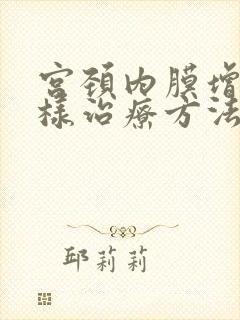 宫颈内膜增
样治疗方法
邱莉莉